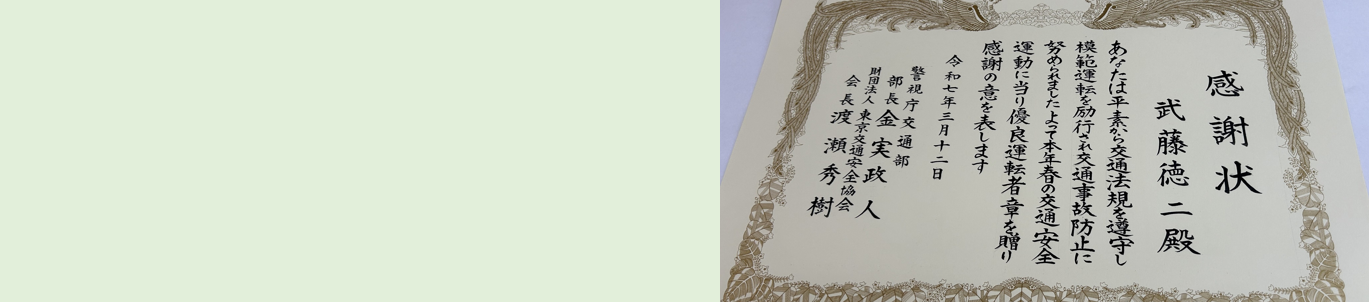 感謝状
武藤徳二殿
あなたは平素から交通法規を遵守し
模範運転を励行され交通事故防止に
努められました よって本年春の交通安全
運動に当り優良運転者章を贈り
感謝の意を表します
令和七年三月十二日
警視庁交通部
部長 金実政人
財団法人 東京交通安全協会
会長 渡瀬秀樹